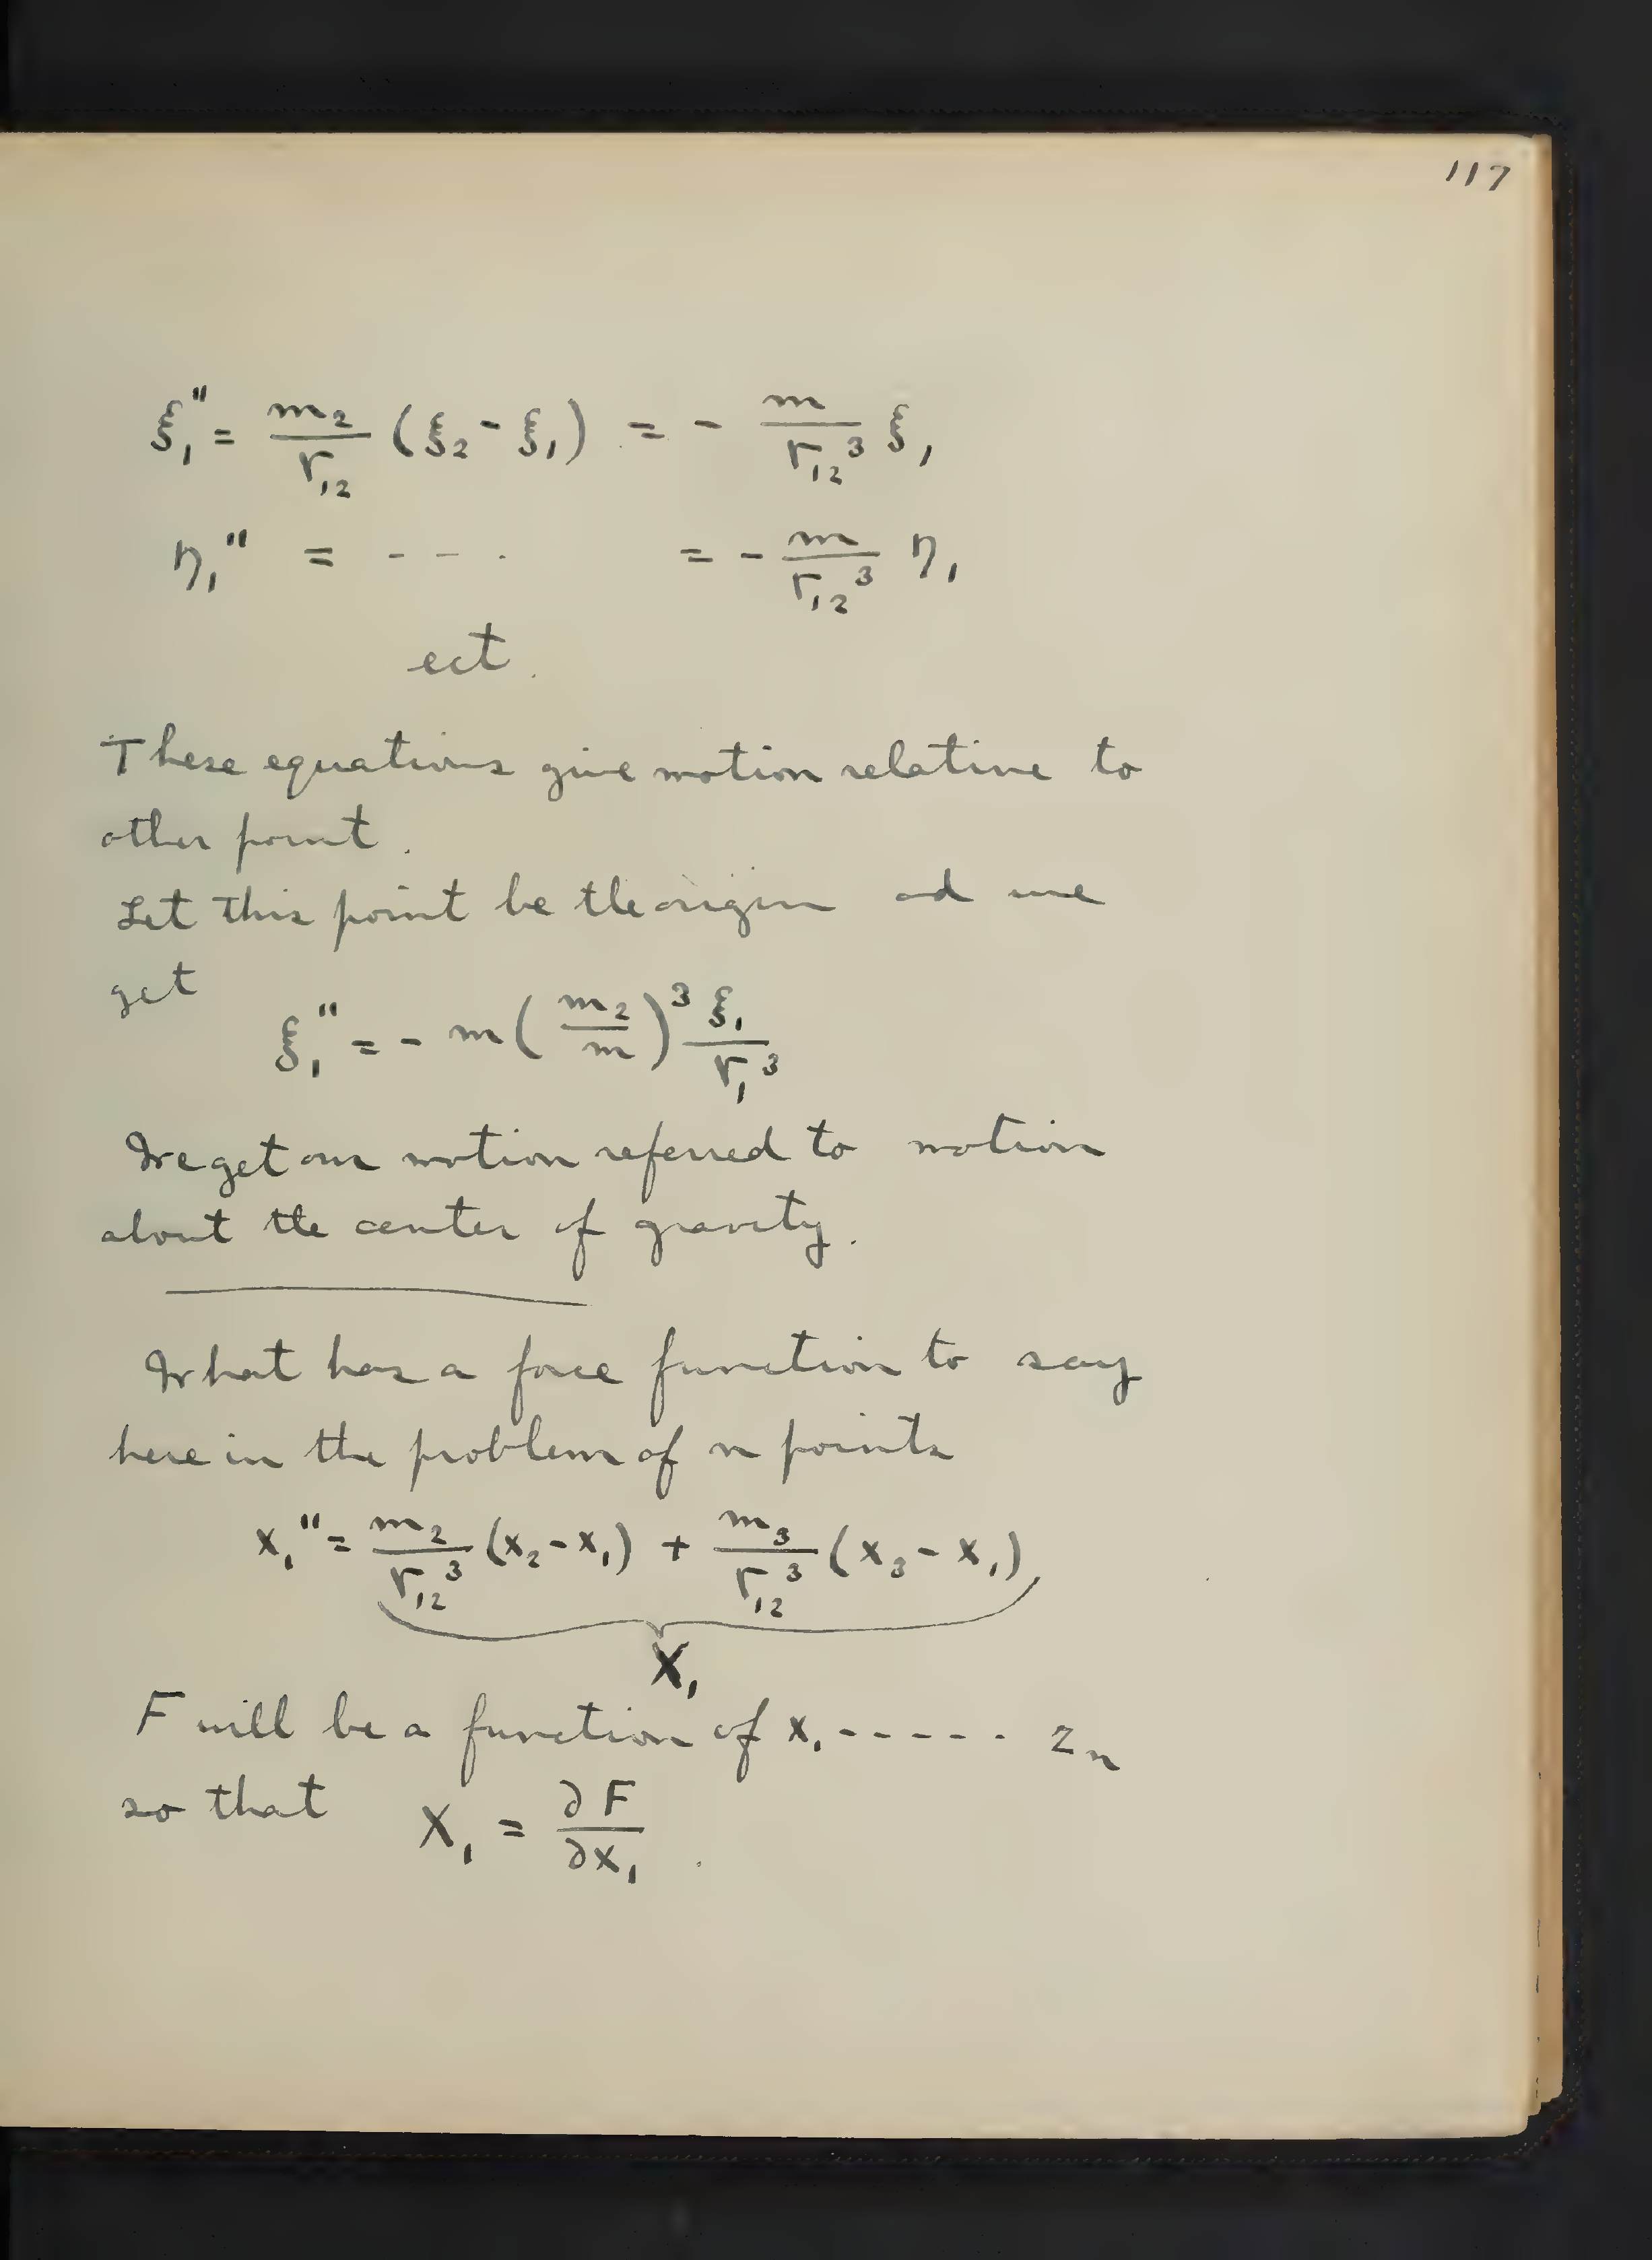 117
ξ₁'' = m₂/r₁₂ (ξ₂ - ξ₁) = - m/r₁₂³ ξ₁
η₁'' = - - - = - m/r₁₂³ η₁
ect.
These equations give motion relative to
other point.
Let this point be the origin ad we
get
ξ₁'' = - m (m₂/m)³ ξ₁/r₁³
We get our motion referred to motion
about the center of gravity.
What has a force function to say
here in the problem of n points
x₁'' = m₂/r₁₂³ (x₂ - x₁) + m₃/r₁₂³ (x₃ - x₁)
X₁
F will be a function of x₁ - - - - - zₙ
so that X₁ = ∂F/∂x₁.